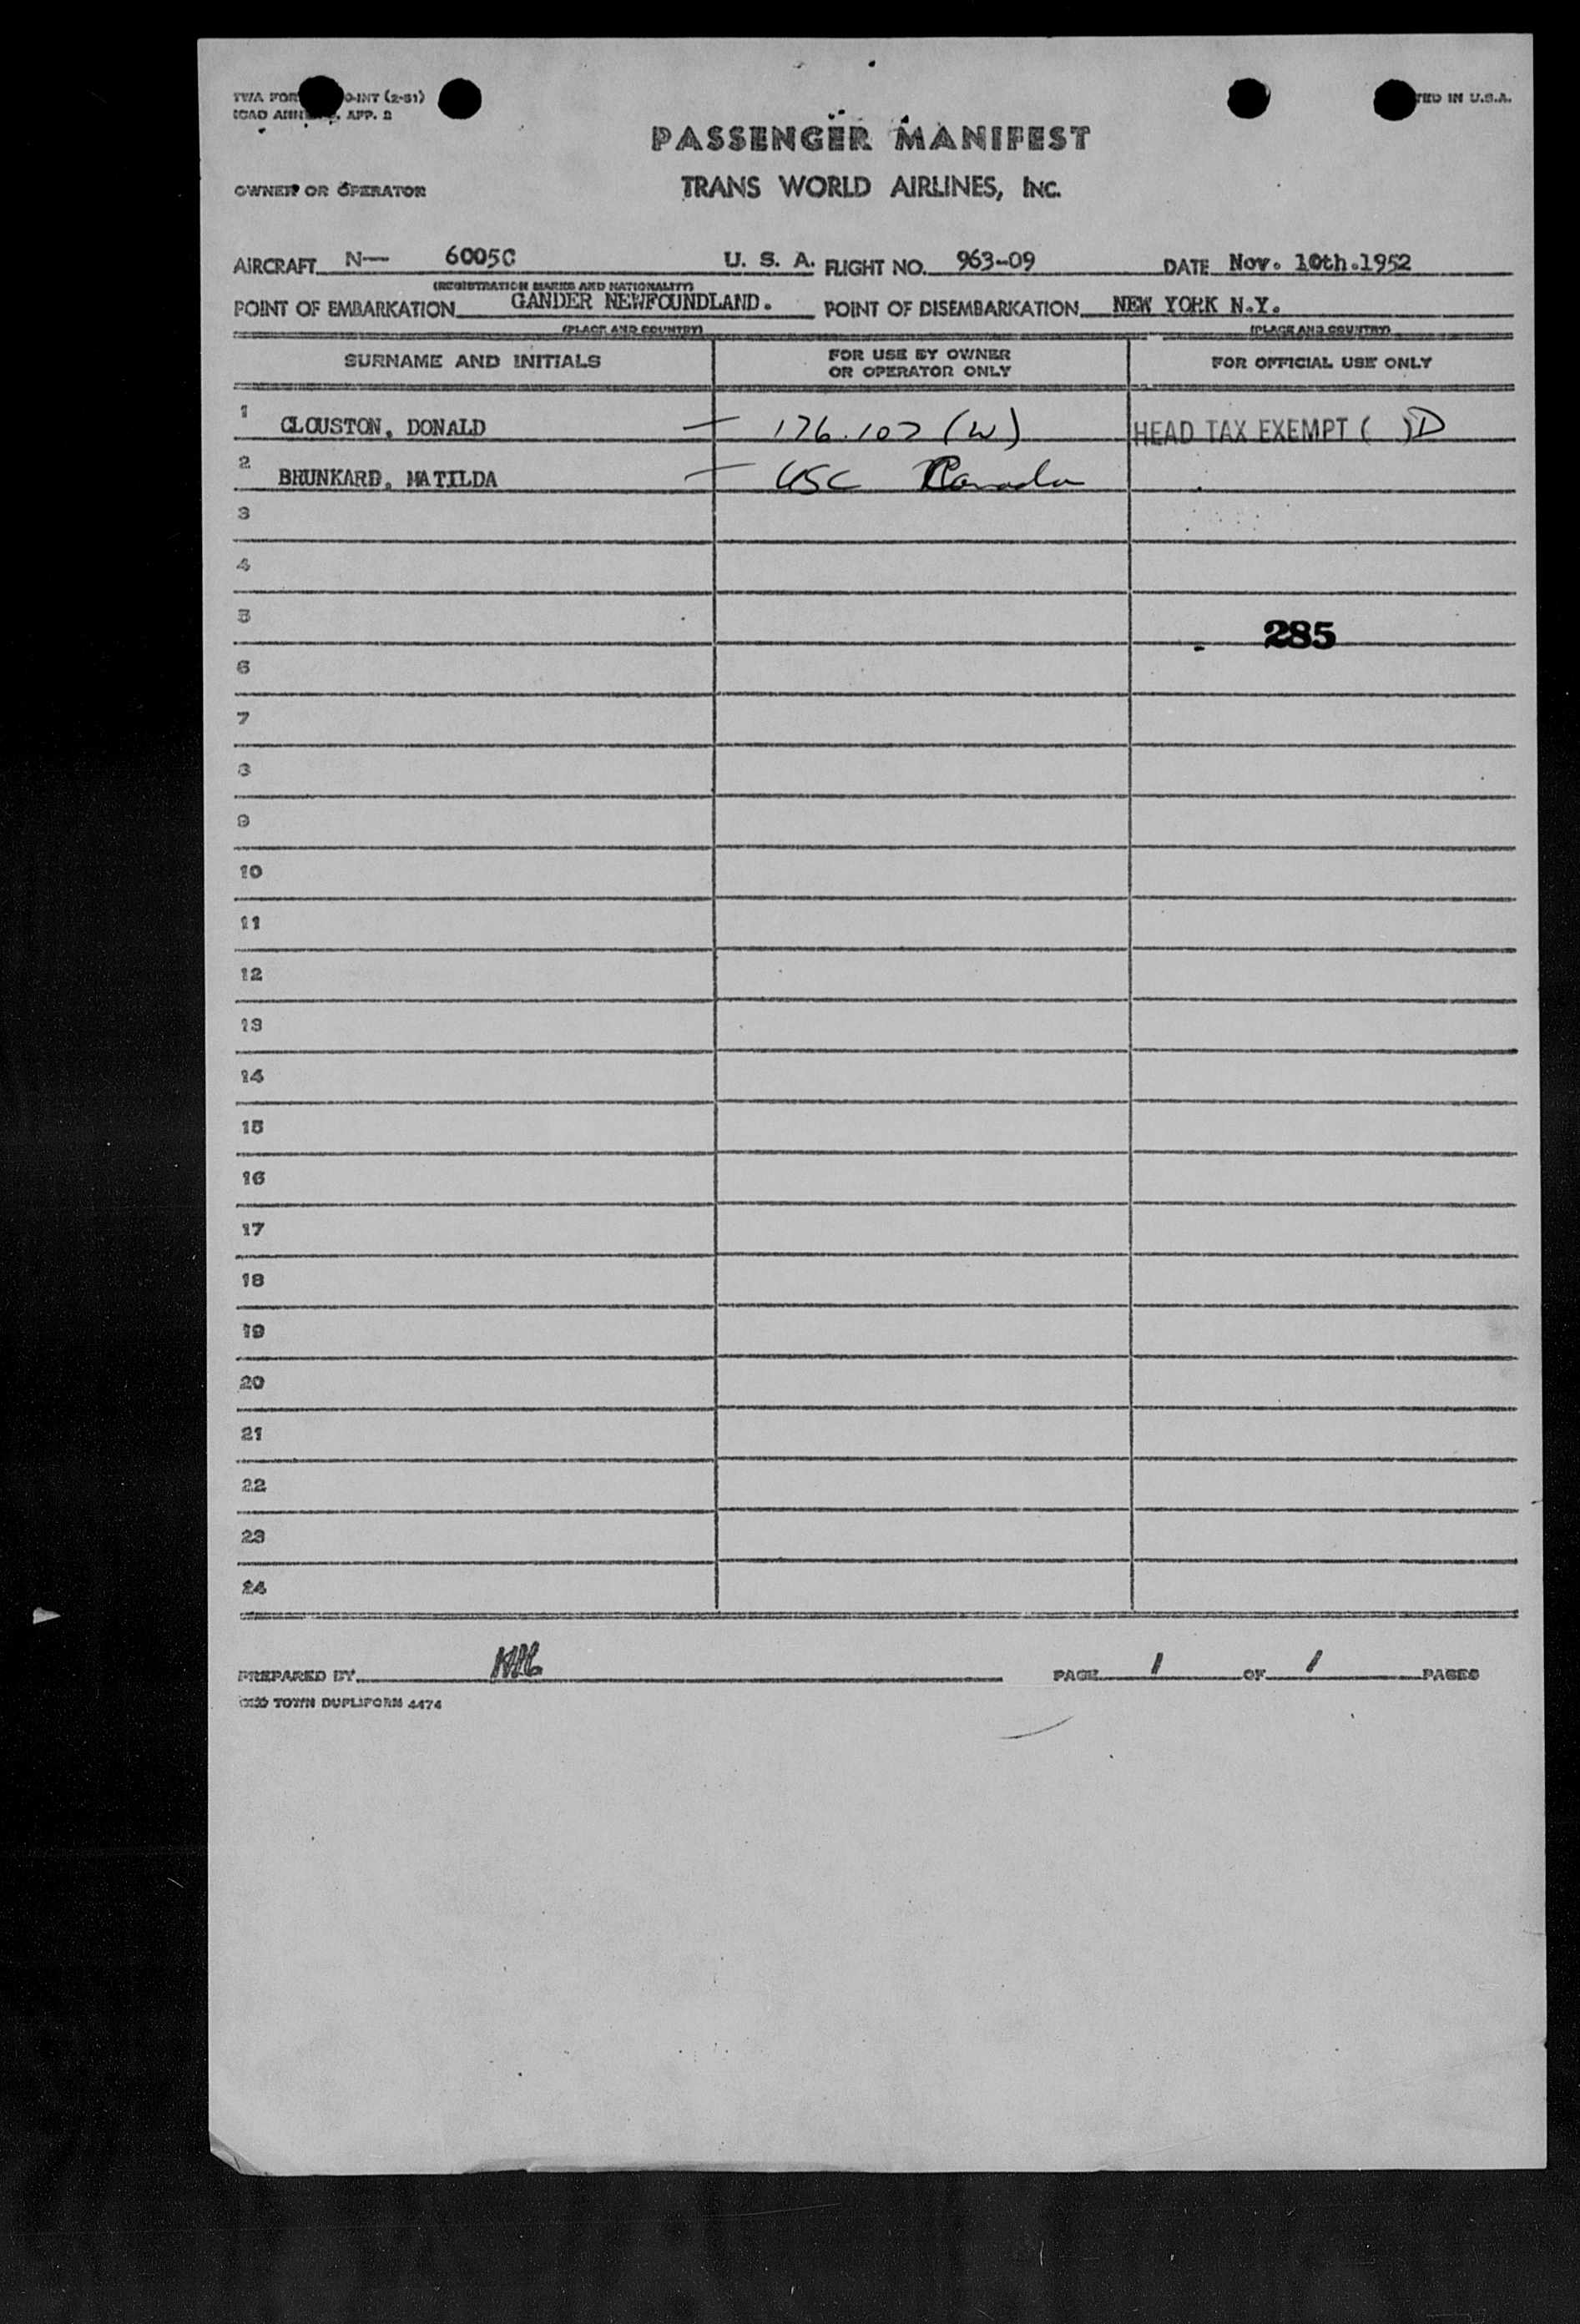 TWA FOR O-INT (2-51) TED IN U.S.A.
ICAO ANN , APP. 2
PASSENGER MANIFEST
OWNER OR OPERATOR TRANS WORLD AIRLINES, INC.
AIRCRAFT N— 6005C U. S. A. FLIGHT NO. 963-09 DATE Nov. 10th.1952
(REGISTRATION MARKS AND NATIONALITY)
POINT OF EMBARKATION GANDER NEWFOUNDLAND. POINT OF DISEMBARKATION NEW YORK N.Y.
(PLACE AND COUNTRY) (PLACE AND COUNTRY)
SURNAME AND INITIALS FOR USE BY OWNER OR OPERATOR ONLY FOR OFFICIAL USE ONLY
1 CLOUSTON, DONALD — 176.107 (W) HEAD TAX EXEMPT ( ) D
2 BRUNKARD, MATILDA — USC Canada
3
4
5 285
6
7
8
9
10
11
12
13
14
15
16
17
18
19
20
21
22
23
24
PREPARED BY PAGE 1 OF 1 PAGES
OLD TOWN DUPLIFORM 4474